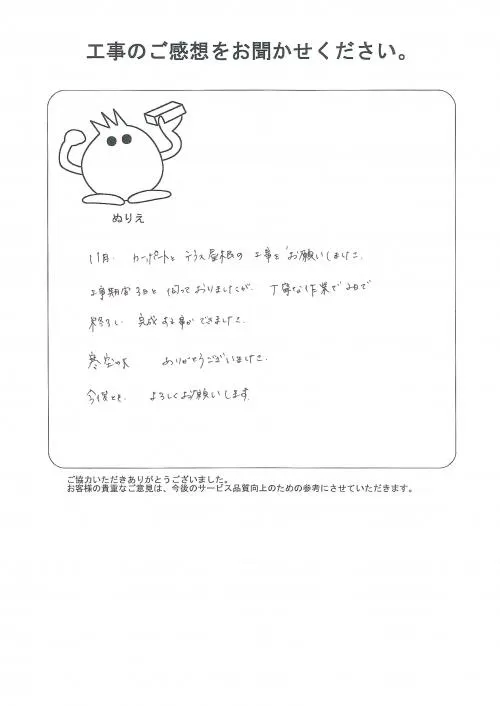 工事のご感想をお聞かせください。
ぬりえ
11月、カーポートとテラス屋根の工事をお願いしました。
工事期間3日と伺っておりましたが、丁寧な作業で2日で
終了し、完成する事ができました。
寒空の下 ありがとうございました。
今後とも、よろしくお願いします。
ご協力いただきありがとうございました。
お客様の貴重なご意見は、今後のサービス品質向上のための参考にさせていただきます。